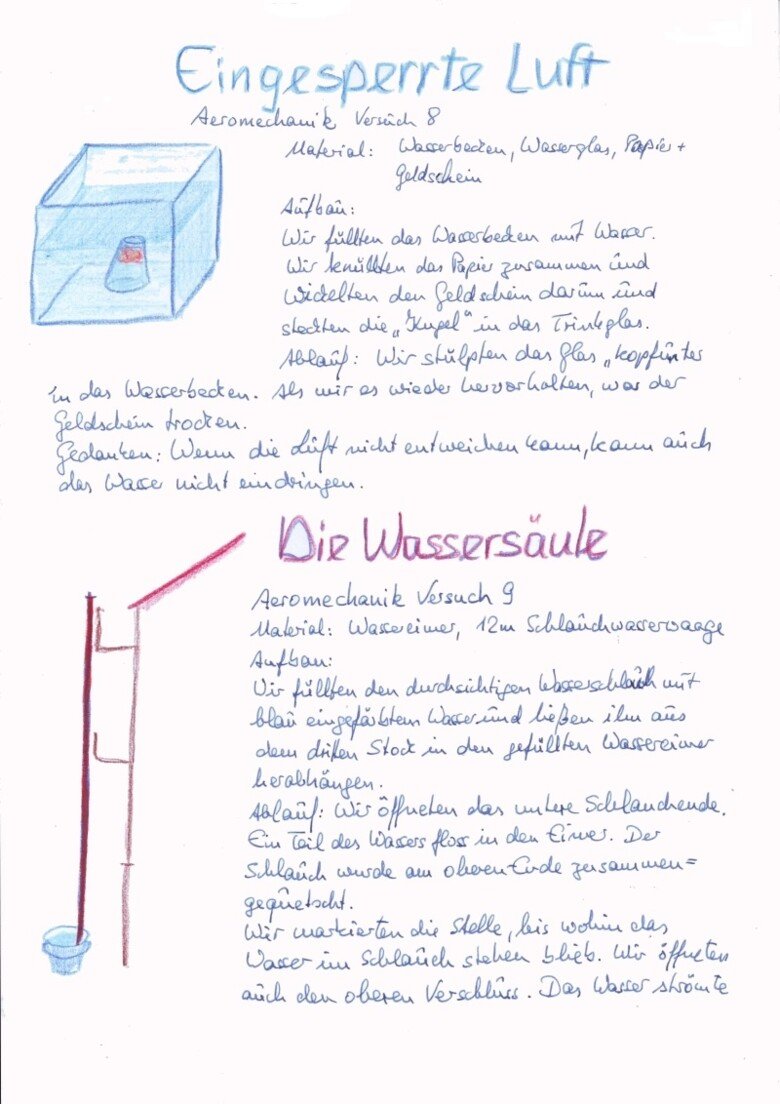 Eingesperrte Luft
Aeromechanik Versuch 8
Material: Wasserbecken, Wasserglas, Papier +
Geldschein
Aufbau:
Wir füllten das Wasserbecken mit Wasser.
Wir knüllten das Papier zusammen und
wickelten den Geldschein darum und
steckten die „Kugel" in das Trinkglas.
Ablauf: Wir stülpten das Glas „kopfunter
in das Wasserbecken. Als wir es wieder hervorholten, war der
Geldschein trocken.
Gedanken: Wenn die Luft nicht entweichen kann, kann auch
das Wasser nicht eindringen.
Die Wassersäule
Aeromechanik Versuch 9
Material: Wassereimer, 12m Schlauchwasserwaage
Aufbau:
Wir füllten den durchsichtigen Wasserschlauch mit
blau eingefärbtem Wasser und ließen ihn aus
dem dritten Stock in den gefüllten Wassereimer
herabhängen.
Ablauf: Wir öffneten das untere Schlauchende.
Ein Teil des Wassers floss in den Eimer. Der
Schlauch wurde am oberen Ende zusammen=
gequetscht.
Wir markierten die Stelle, bis wohin das
Wasser im Schlauch stehen blieb. Wir öffneten
auch den oberen Verschluss. Das Wasser strömte